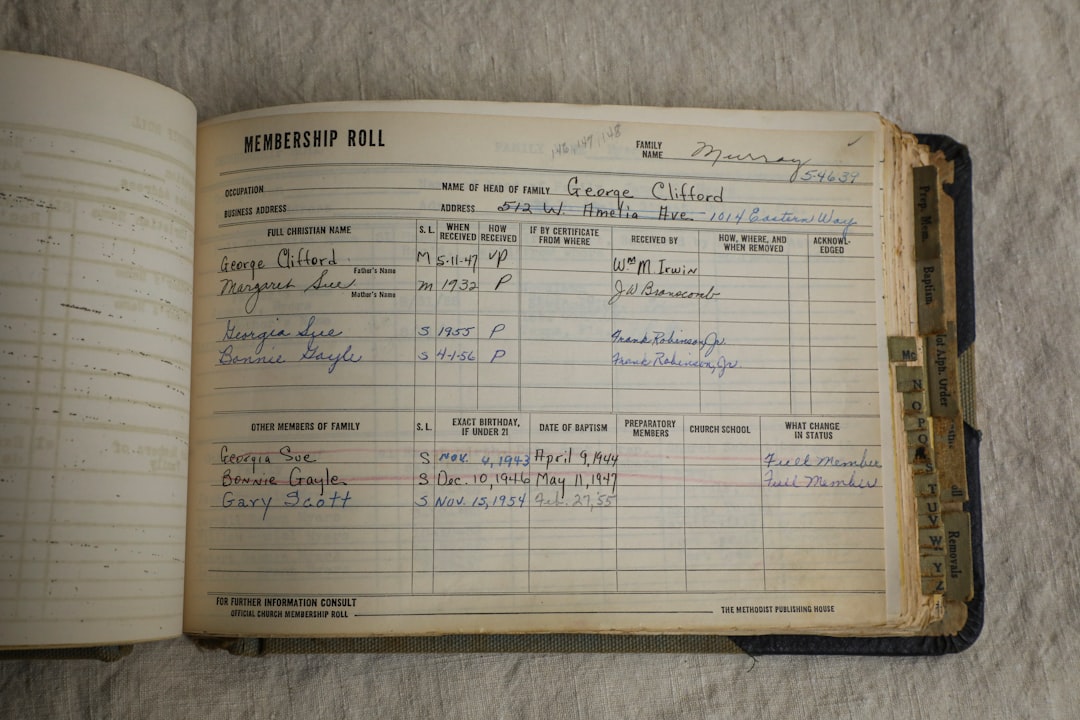 MEMBERSHIP ROLL
146 147 148
FAMILY NAME Murray
54639
OCCUPATION NAME OF HEAD OF FAMILY George Clifford
BUSINESS ADDRESS ADDRESS 512 W. Amelia Ave. - 1014 Eastern Way
FULL CHRISTIAN NAME S. L. WHEN RECEIVED HOW RECEIVED IF BY CERTIFICATE FROM WHERE RECEIVED BY HOW, WHERE, AND WHEN REMOVED ACKNOWLEDGED
George Clifford M 5-11-47 VP Wm M Irwin
Father's Name
Margaret Sue m 1932 P J W Branscomb
Mother's Name
Georgia Sue S 1955 P Frank Robinson, Jr.
Bonnie Gayle S 4-1-56 P Frank Robinson, Jr.
OTHER MEMBERS OF FAMILY S. L. EXACT BIRTHDAY, IF UNDER 21 DATE OF BAPTISM PREPARATORY MEMBERS CHURCH SCHOOL WHAT CHANGE IN STATUS
Georgia Sue S Nov. 4, 1943 April 9, 1944 Full Member
Bonnie Gayle S Dec. 10, 1946 May 11, 1947 Full Member
Gary Scott S Nov. 15, 1954 Feb. 27, '55
FOR FURTHER INFORMATION CONSULT
OFFICIAL CHURCH MEMBERSHIP ROLL THE METHODIST PUBLISHING HOUSE
Prep. Mem.
Baptism
Alph. Order
Removals
Mc
N
O
P
Q
S
T
U
V
W
Y
Z